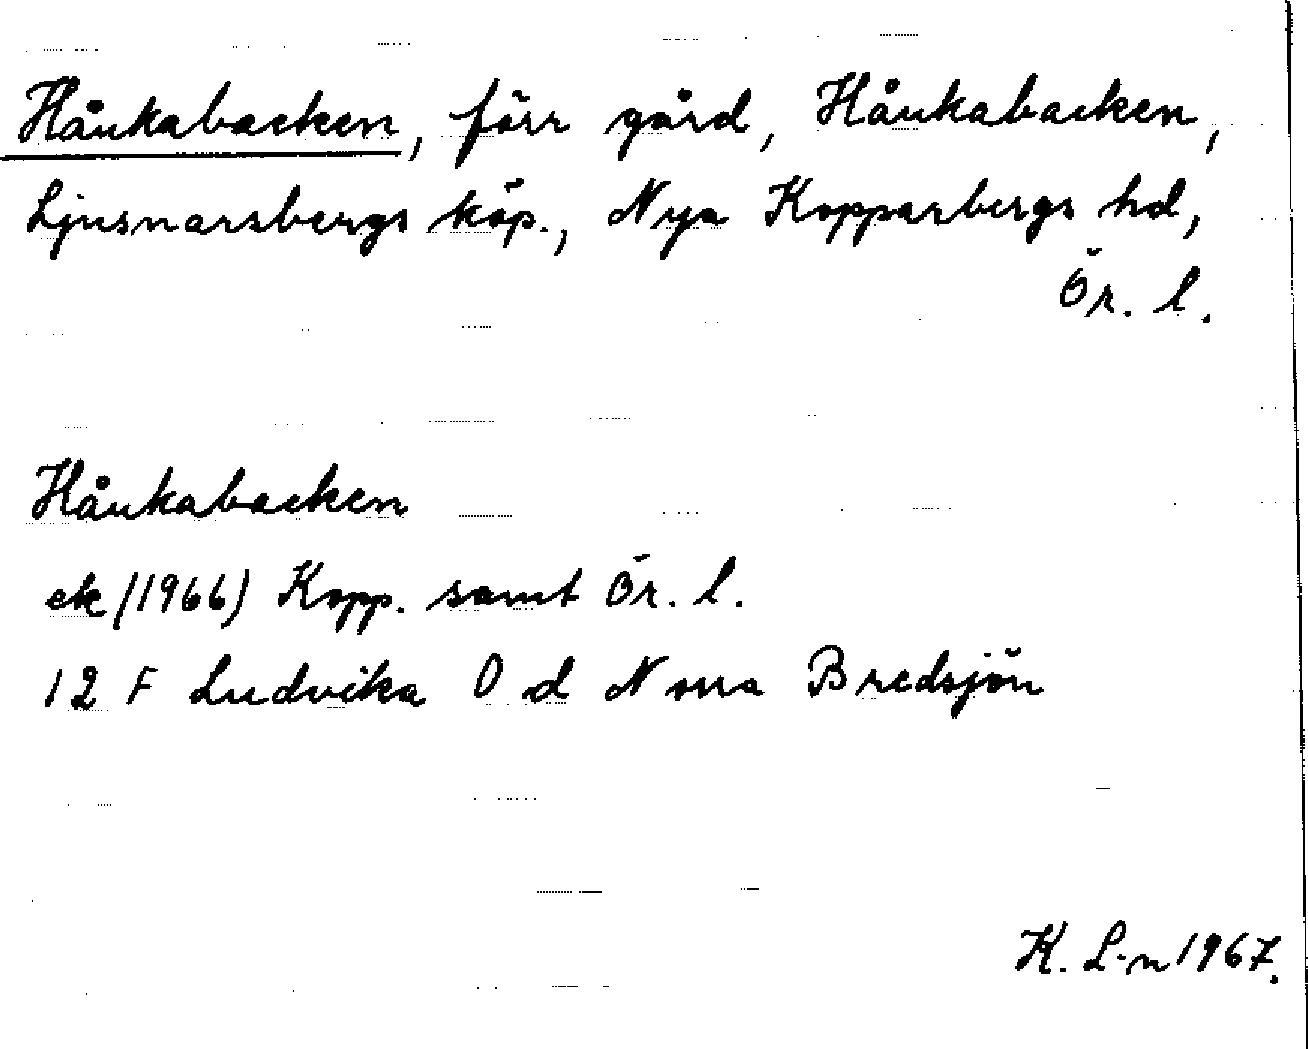 Håukabacken, förr gård, Håukabacken,
Ljusnarsbergs köp., Nya Kopparbergs hd,
Ör. l.
Håukabacken
ek (1966) Kopp. samt Ör. l.
12 F Ludvika 0 d Norra Bredsjön
K. L-n 1967.